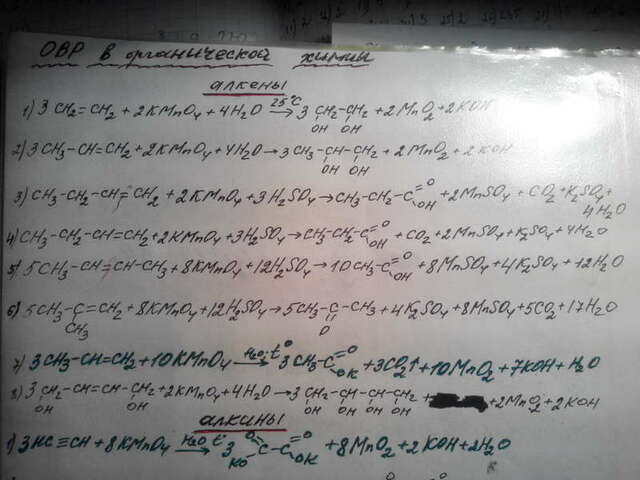 ОВР в органической химии
алкены
1) 3CH₂=CH₂ + 2KMnO₄ + 4H₂O 25°C → 3 CH₂–CH₂ + 2MnO₂ + 2KOH
OH OH
2) 3CH₃–CH=CH₂ + 2KMnO₄ + 4H₂O → 3CH₃–CH–CH₂ + 2MnO₂ + 2KOH
OH OH
3) CH₃–CH₂–CH=CH₂ + 2KMnO₄ + 3H₂SO₄ → CH₃–CH₂–C=O OH + 2MnSO₄ + CO₂ + K₂SO₄ +
4H₂O
4) CH₃–CH₂–CH=CH₂ + 2KMnO₄ + 3H₂SO₄ → CH₃–CH₂–C=O OH + CO₂ + 2MnSO₄ + K₂SO₄ + 4H₂O
5) 5CH₃–CH=CH–CH₃ + 8KMnO₄ + 12H₂SO₄ → 10CH₃–C=O OH + 8MnSO₄ + 4K₂SO₄ + 12H₂O
6) 5CH₃–C=CH₂ + 8KMnO₄ + 12H₂SO₄ → 5CH₃–C–CH₃ + 4K₂SO₄ + 8MnSO₄ + 5CO₂ + 17H₂O
CH₃ O
7) 3CH₃–CH=CH₂ + 10KMnO₄ H₂O, t° → 3CH₃–C=O OK + 3CO₂↑ + 10MnO₂ + 7KOH + H₂O
8) 3CH₂–CH=CH–CH₂ + 2KMnO₄ + 4H₂O → 3CH₂–CH–CH–CH₂ + + 2MnO₂ + 2KOH
OH OH OH OH OH OH
алкины
1) 3HC≡CH + 8KMnO₄ H₂O t° → 3 O=C–C=O + 8MnO₂ + 2KOH + 2H₂O
KO OK